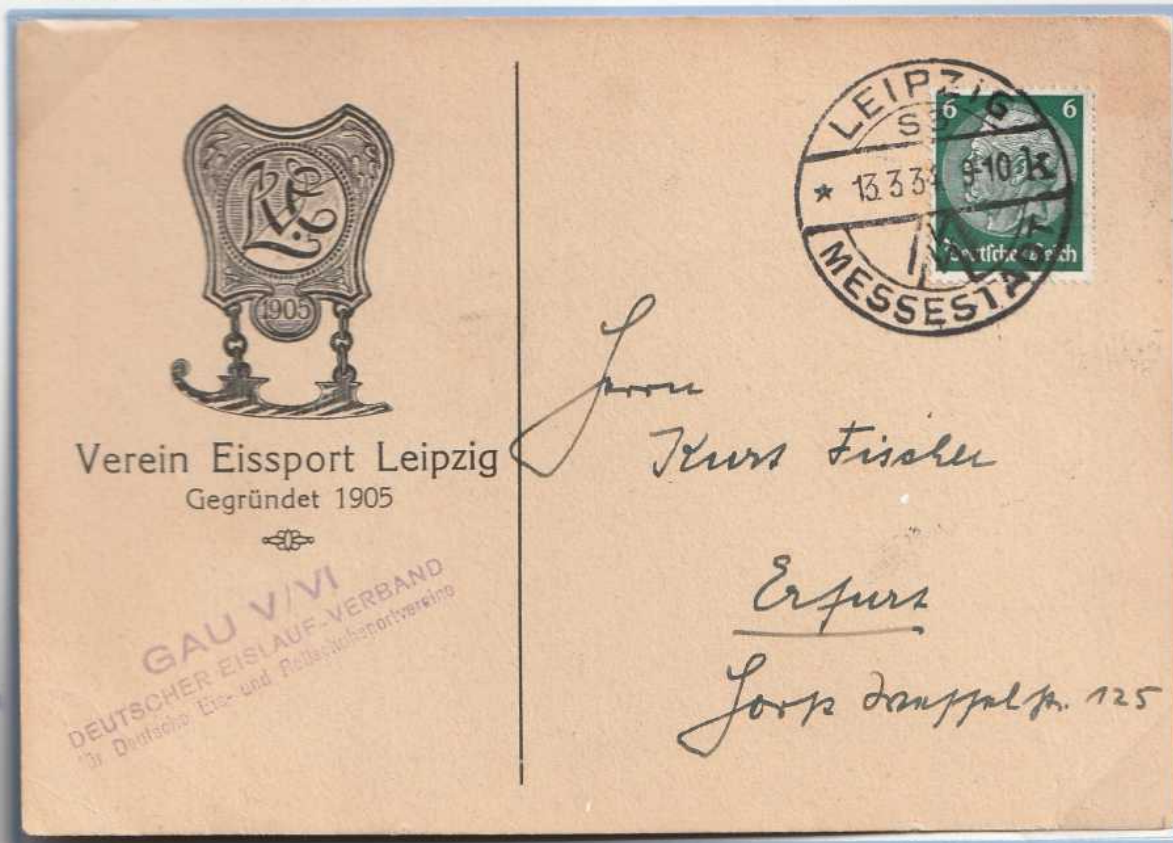 1905
Verein Eissport Leipzig
Gegründet 1905
GAU V/VI
DEUTSCHER EISLAUF-VERBAND
für Deutsche Eis- und Rollschuhsportvereine
LEIPZiG
13.3.34 9-10 k
MESSESTADT
6 6
Deutsches Reich
Herrn
Kurt Fischer
Erfurt
Horst Wesselstr. 125